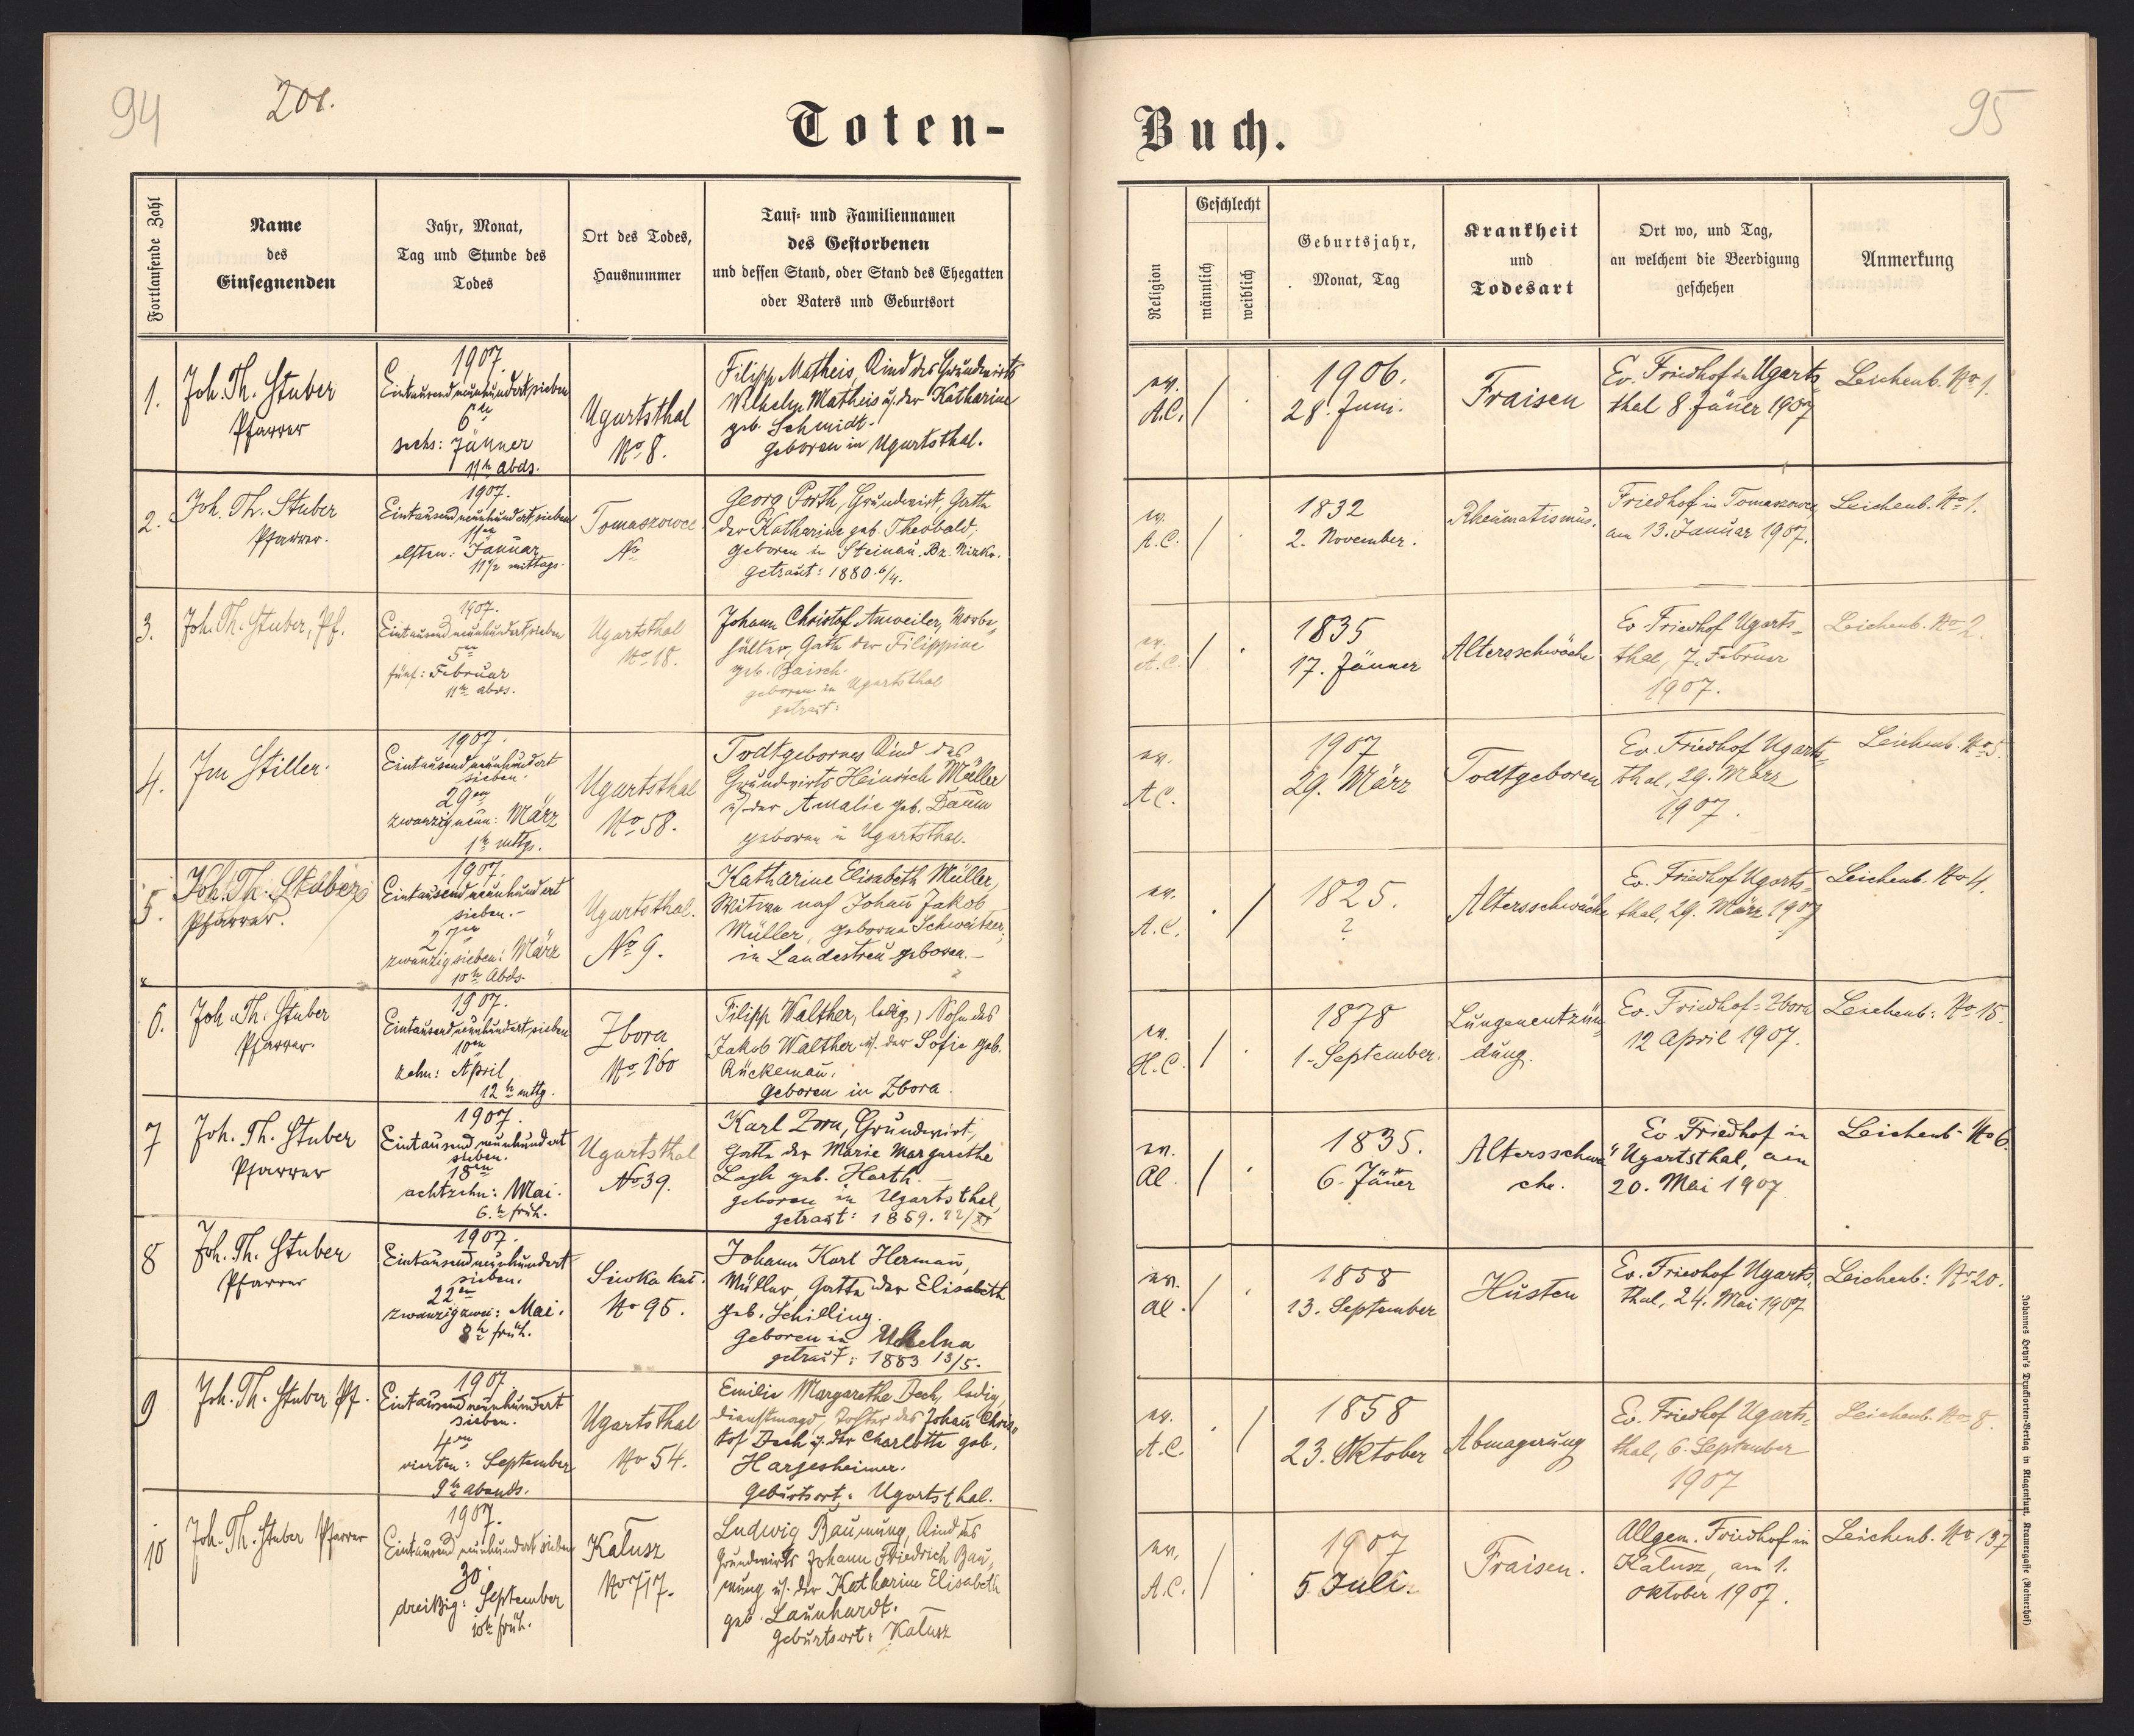 94
201.
Toten-
Fortlaufende Zahl
Name
des
Einsegnenden
Jahr, Monat,
Tag und Stunde des
Todes
Ort des Todes,
Hausnummer
Tauf- und Familiennamen
des Gestorbenen
und dessen Stand, oder Stand des Ehegatten
oder Vaters und Geburtsort
1.
Joh. Th. Stuber
Pfarrer
1907.
Eintausendneunhundertsieben
6ten
sechs: Jänner
11h Abds.
Ugartsthal
No 8.
Filipp Matheis, Kind des Grundwirts
Wilhelm Matheis u. der Katharine
geb. Schmidt.
geboren in Ugartsthal.
2.
Joh. Th. Stuber
Pfarrer.
1907.
Eintausendneunhundertsieben
11ten
elften: Januar
11 1/2 mittags.
Tomaszowce
No
Georg Porth, Grundwirt, Gatte
der Katharine geb. Theobald;
geboren in Steinau. Bz. Nisko.
getraut: 1880. 6/4.
3.
Joh. Th. Stuber, Pf.
1907.
Eintausendneunhundertsieben
5en
fünf: Februar
11h abds.
Ugartsthal
No 18.
Johann Christof Anweiler, Vorbe-
hälter, Gatte der Filippine
geb. Baisch
geboren in Ugartsthal
getraut:
4.
Im Stiller.
1907.
Eintausendneunhundert
sieben.
29en
zwanzigneun: März
1h mttgs.
Ugartsthal
No 58.
Todtgebornes Kind des
Grundwirts Heinrich Müller
u. der Amalie geb. Daum
geboren in Ugartsthal.
5.
Joh. Th. Stuber
Pfarrer.
1907.
Eintausendneunhundert
sieben.-
27en
zwanzigsieben: März
10h Abds.
Ugartsthal.
No 9.
Katharine Elisabeth Müller,
Witwe nach Johann Jakob
Müller, geborne Schweitzer,
in Landestreu geboren.-
6.
Joh. Th. Stuber
Pfarrer.
1907.
Eintausendneunhundertsieben
10en
zehn: April
12h mttg.
Zbora
No 160
Filipp Walther, ledig, Sohn des
Jakob Walther u. der Sofie geb.
Rückemann.
geboren in Zbora.
7
Joh. Th. Stuber
Pfarrer
1907.
Eintausendneunhundert
sieben.
18en
achtzehn: Mai.
6.h früh.
Ugartsthal
No 39.
Karl Zorn, Grundwirt,
Gatte der Marie Margarethe
geb. Harth.
geboren in Ugartsthal,
getraut: 1859. 22/XI
8
Joh. Th. Stuber
Pfarrer
1907.
Eintausendneunhundert
sieben.
22en
zwanzigzwei: Mai.
8h früh.
Siwka kał.
No 95.
Johann Karl Hermann,
Müller, Gatte der Elisabeth
geb. Schilling.
geboren in Uhelna
getraut: 1883 13/5.
9
Joh. Th. Stuber Pf.
1907.
Eintausendneunhundert
sieben.
4en
vierten: September
9h abends.
Ugartsthal
No 54.
Emilie Margarethe Dech, ledig,
Dienstmagd, Tochter des Johann Chris-
tof Dech u. der Charlotte geb.
Harjesheimer.
Geburtsort: Ugartsthal.
10
Joh. Th. Stuber Pfarrer
1907.
Eintausendneunhundertsieben
30.
dreißig: September
10h früh.
Kałusz
No 717.
Ludwig Baumung, Kind des
Grundwirts Johann Friedrich Bau-
mung u. der Katharine Elisabeth
geb. Launhardt.
Geburtsort: Kałusz
95
Buch.
Religion
Geschlecht
männlich
weiblich
Geburtsjahr,
Monat, Tag
Krankheit
und
Todesart
Ort wo, und Tag,
an welchem die Beerdigung
geschehen
Anmerkung
ev.
A.C.
1906.
28. Juni.
Fraisen
Ev. Friedhof in Ugarts-
thal 8. Jäner 1907
Leichenb. No 1.
ev.
A.C.
1832
2. November.
Rheumatismus.
Friedhof in Tomaszowce
am 13. Januar 1907.
Leichenb. No 1.
ev.
A.C.
1835
17. Jänner
Altersschwäche
Ev. Friedhof Ugarts-
thal, 7. Februar
1907.
Leichenb. No 2.
ev.
A.C.
1907
29. März
Todtgeboren
Ev. Friedhof Ugarts-
thal, 29. März
1907.
Leichenb. No 5.
ev.
A.C.
1825.
?
Altersschwäche
Ev. Friedhof Ugarts-
thal, 29. März 1907
Leichenb. No 4.
ev.
H.C.
1878
1. September.
Lungenentzün-
dung.
Ev. Friedhof: Zbora
12 April 1907.
Leichenb: No 15.
ev.
A.C.
1835.
6. Jäner
Altersschwä-
che.
Ev. Friedhof in
Ugartsthal, am
20. Mai 1907
Leichenb. No 6.
ev.
A.C.
1858
13. September
Husten
Ev. Friedhof Ugarts-
thal, 24. Mai 1907
Leichenb: No 20.
ev.
A.C.
1858
23. Oktober
Abmagerung
Ev. Friedhof Ugarts-
thal, 6. September
1907
Leichenb. No 8.
ev.
A.C.
1907
5. Juli.
Fraisen.
Allgem. Friedhof in
Kałusz, am 1.
Oktober 1907.
Leichenb. No 137
Johannes Heyn's Drucksorten-Verlag in Klagenfurt, Kramergasse (Rainerhof)